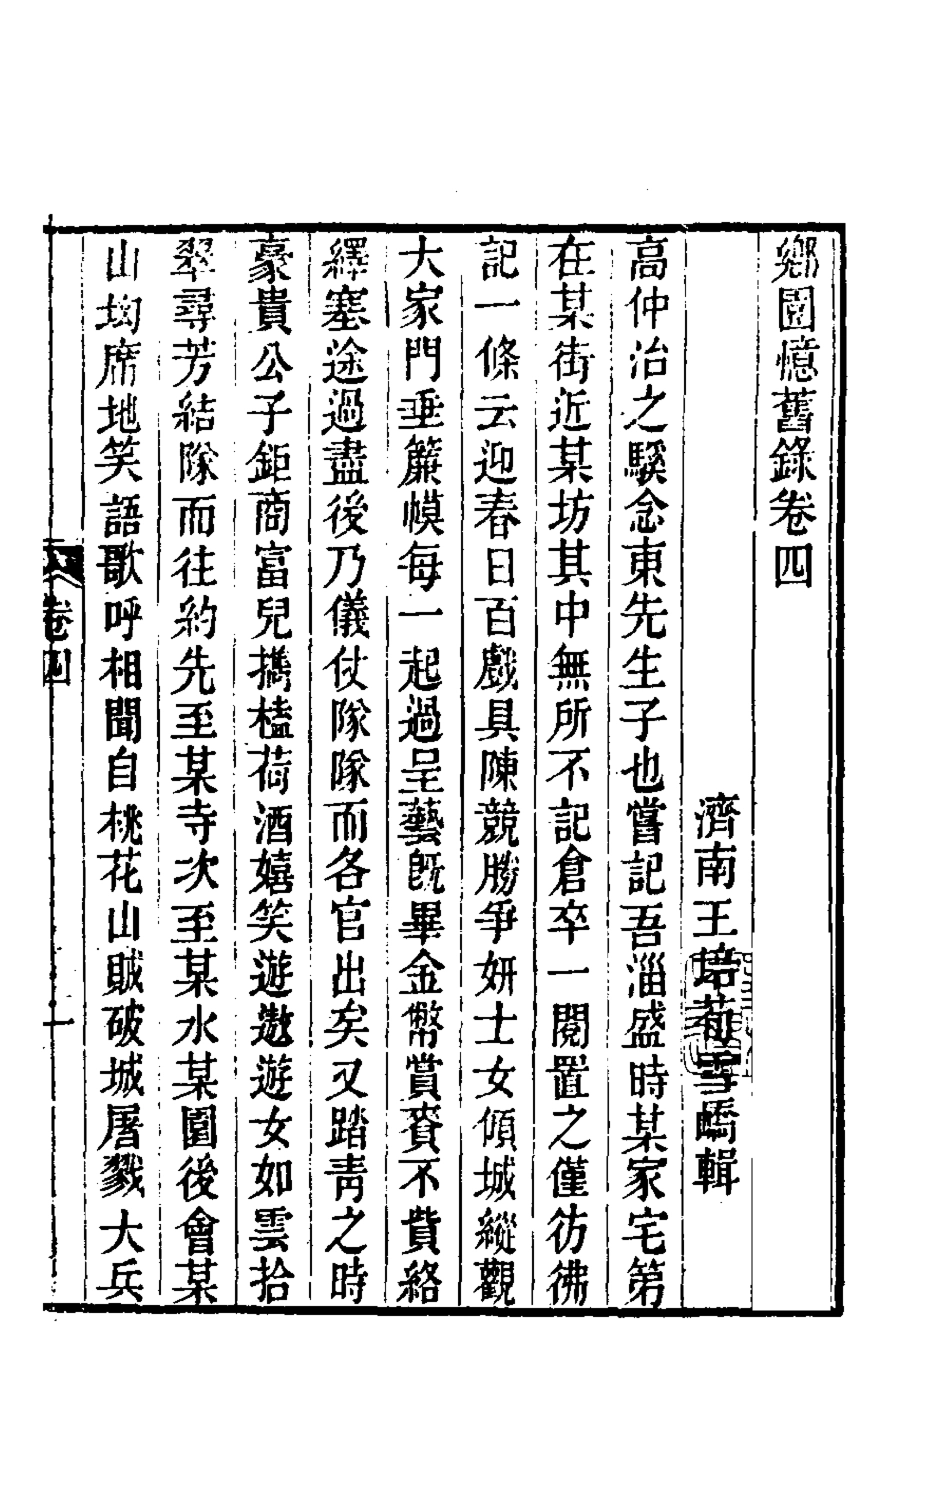 鄉園憶舊錄卷四
濟南王培荀雪嶠輯
高仲治之騱念東先生子也嘗記吾淄盛時某家宅第
在某街近某坊其中無所不記倉卒一閱置之僅彷彿
記一條云迎春日百戲具陳競勝爭妍士女傾城縱觀
大家門垂簾幙每一起過呈藝旣畢金幣賞賚不貲絡
繹塞途過盡後乃儀仗隊隊而各官出矣又踏靑之時
豪貴公子鉅商富兒擕榼荷酒嬉笑遊遨遊女如雲拾
翠尋芳結隊而往約先至某寺次至某水某園後會某
山坳席地笑語歌呼相聞自桃花山賊破城屠戮大兵
卷四
一